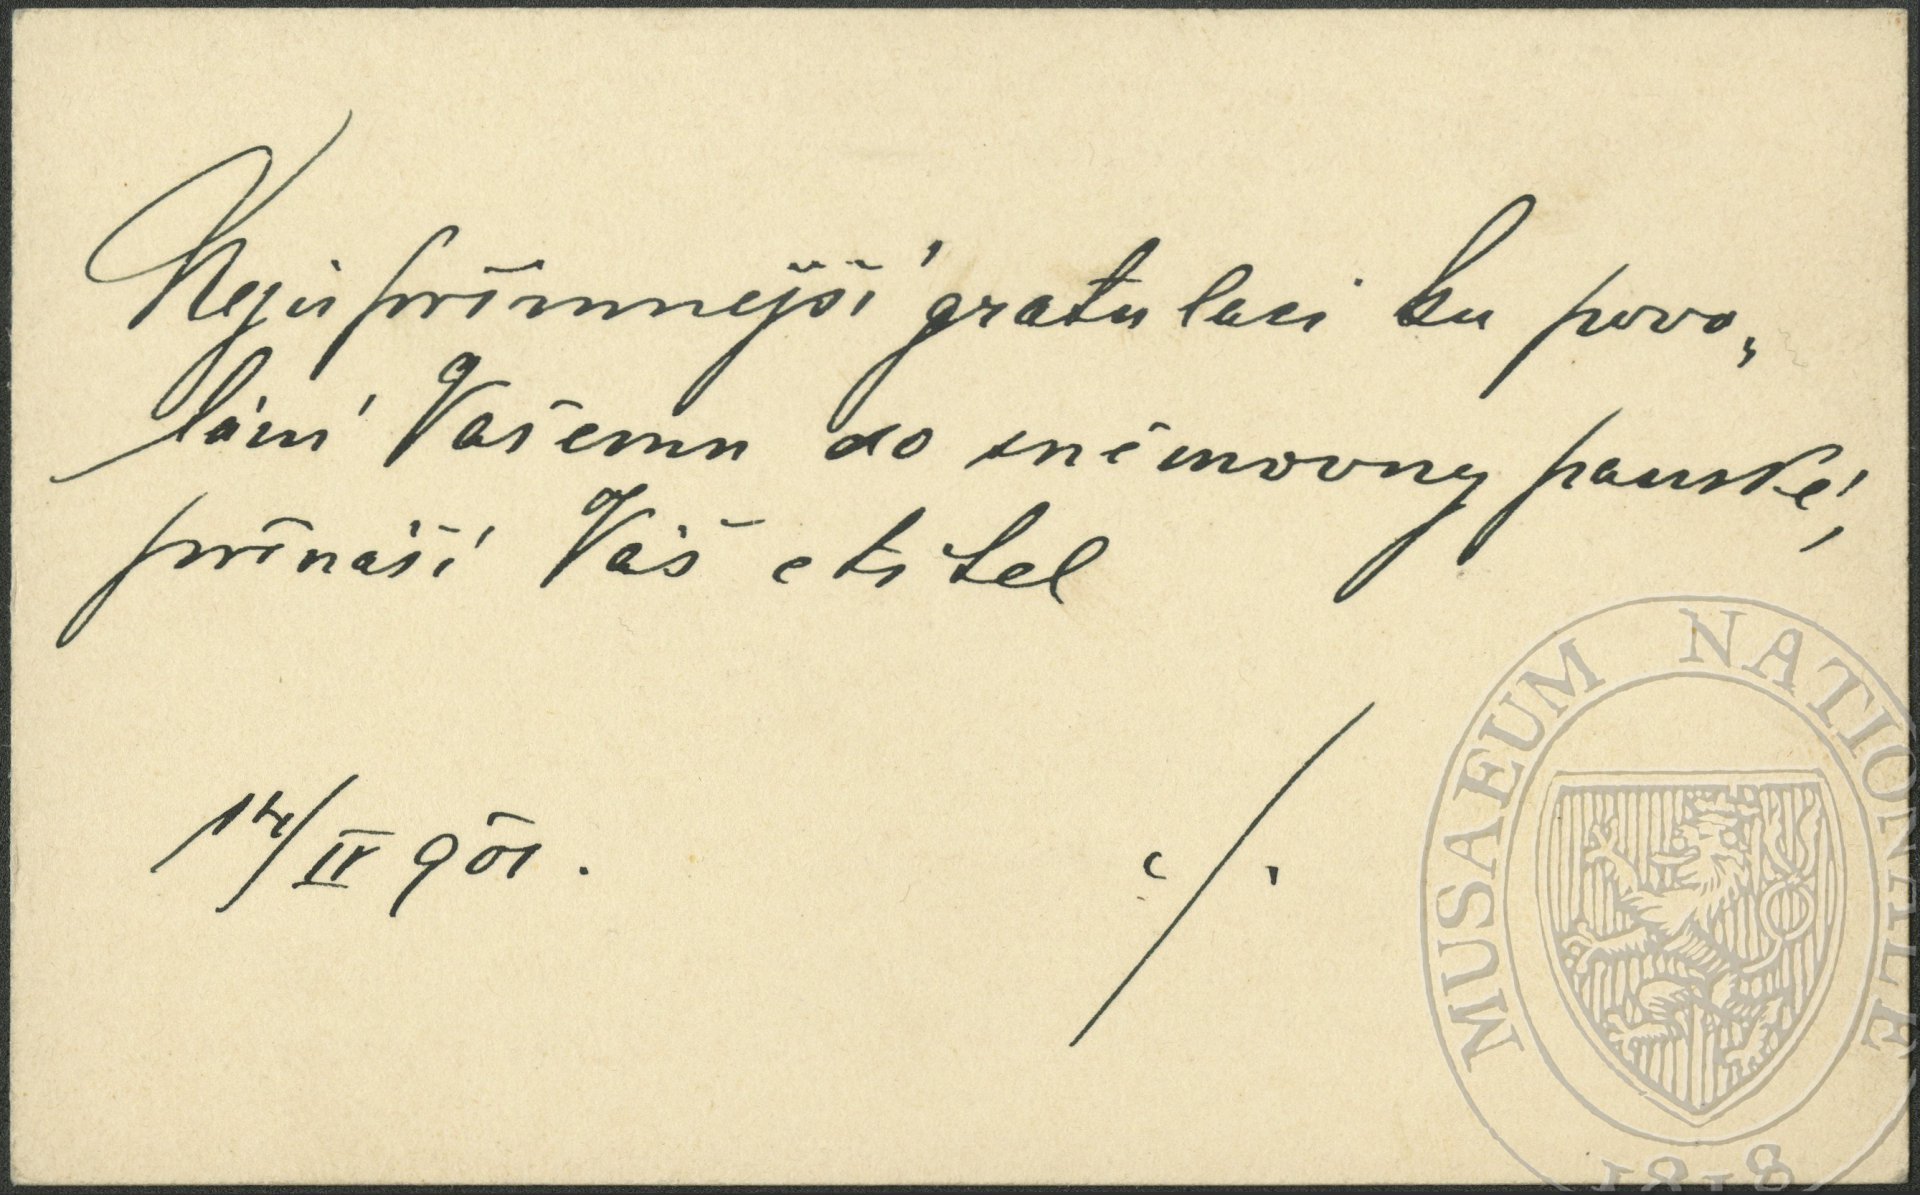 Nejupřímnější gratulaci ku povo„
lání Vašemu do sněmovny panské,
přináší Váš ctitel
14/IV 901.
./.
MUSAEUM NATIONALE
1818